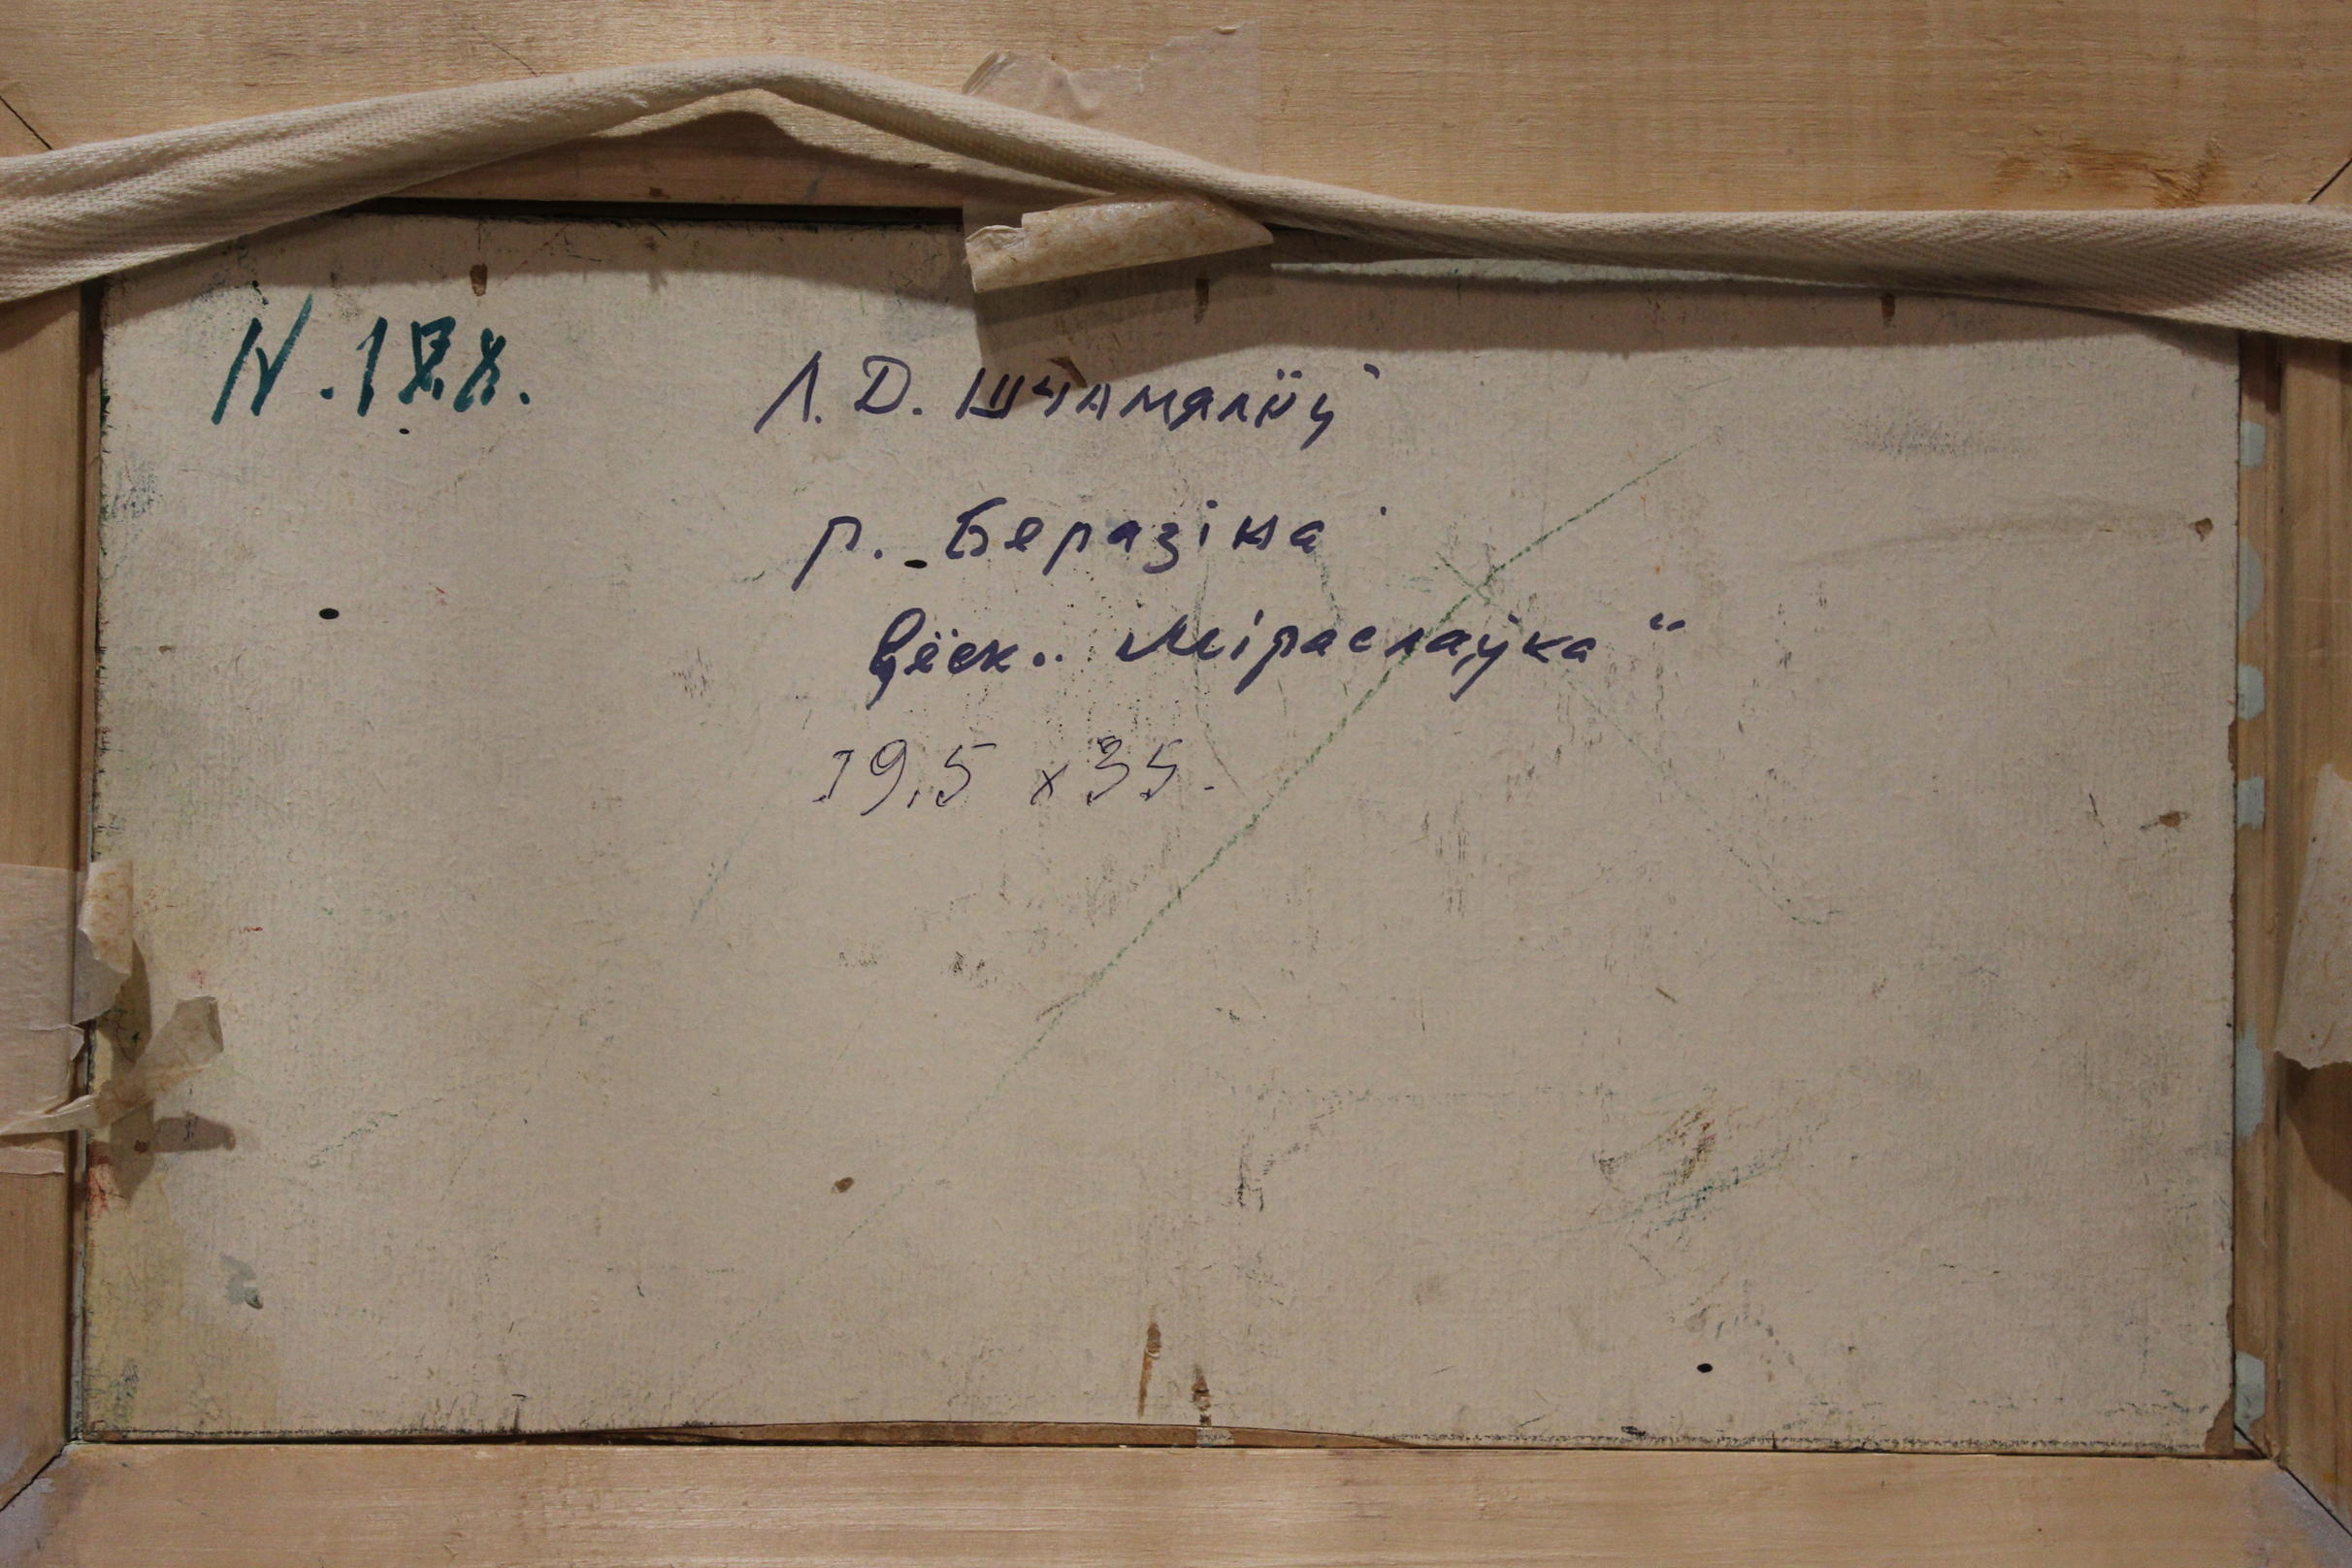 Л. Д. Шчамялёў
р. Беразіна
Вёск.. Міраслаўка"
19,5 х 35.